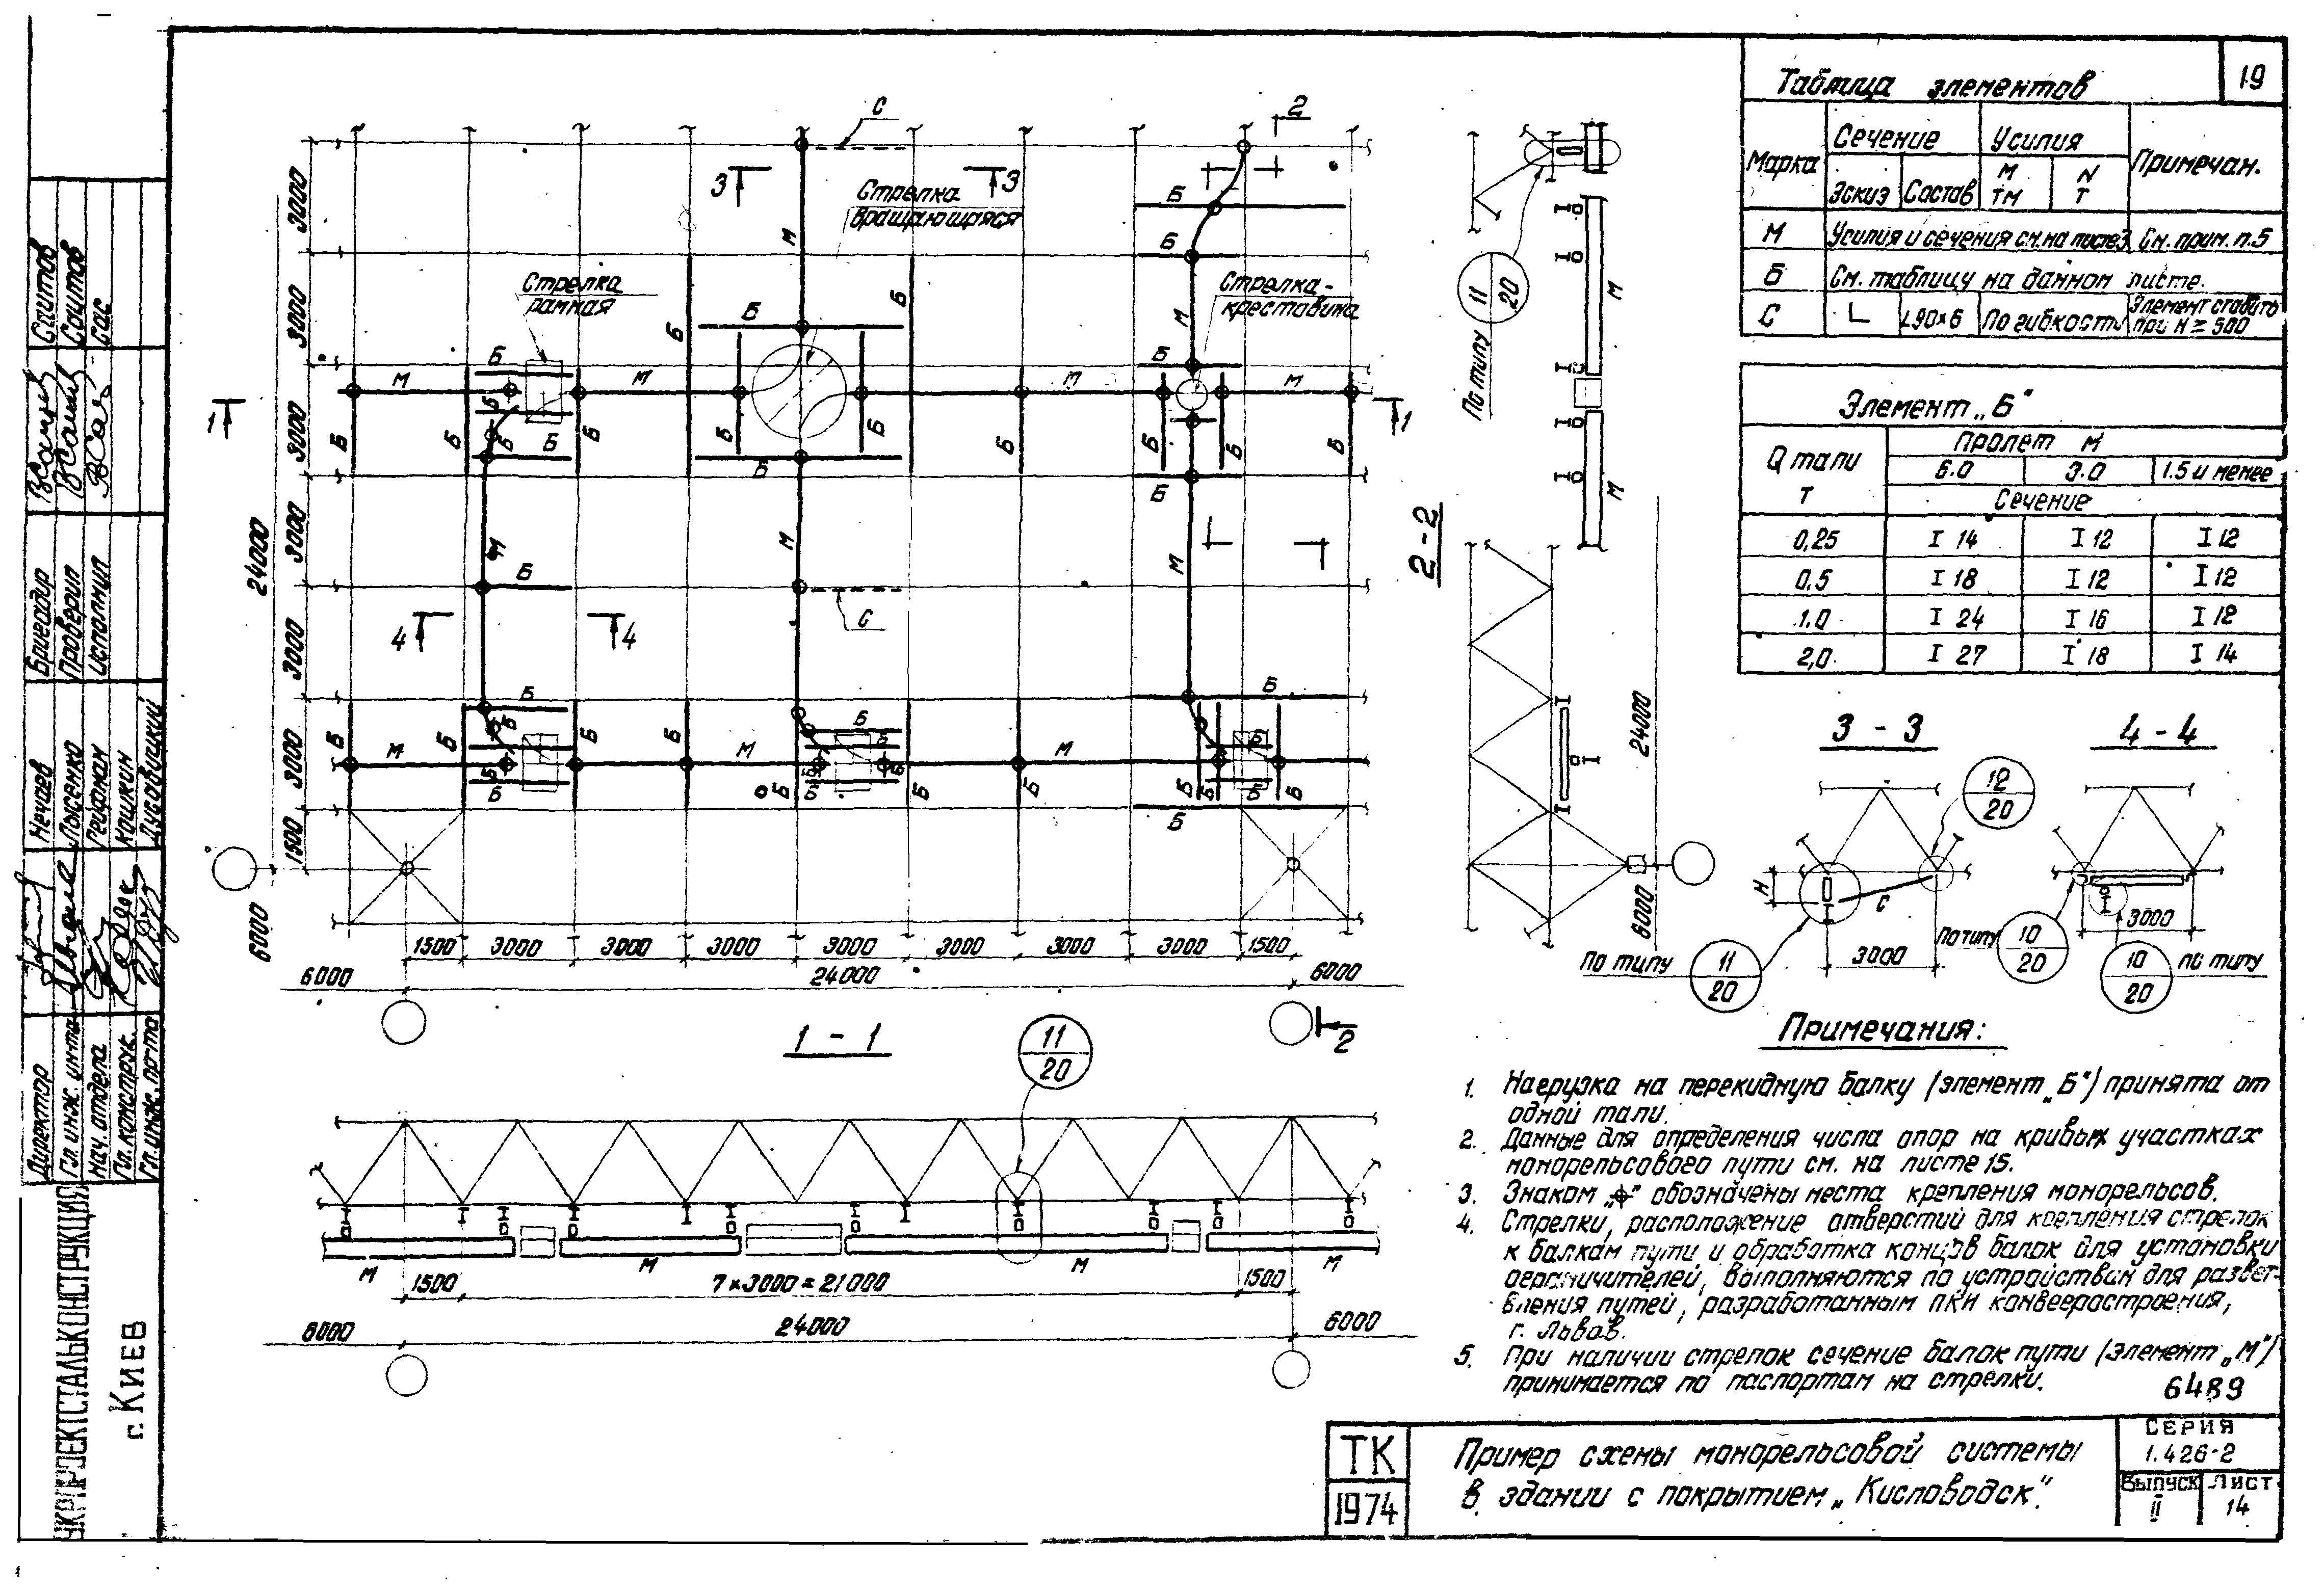 19
Таблица элементов
Марка
Сечение
Усилия
Примечан.
Эскиз
Состав
М ТМ
N Т
М Усилия и сечения см. на листе 3 См. прим. п.5
Б См. таблицу на данном листе.
С L90×6 По гибкости Элемент ставить при H ≥ 500
Элемент „Б"
Q тали Т
Пролет М
6.0 3.0 1.5 и менее
Сечение
0,25 I 14 I 12 I 12
0,5 I 18 I 12 I 12
1.0 I 24 I 16 I 12
2,0 I 27 I 18 I 14
Стрелка вращающаяся
Стрелка рамная
Стрелка-крестовина
С
М
Б
3 3
2
1 1
4 4
3000 3000 3000 3000 3000 3000 1500
24000
6000
1500 3000 3000 3000 3000 3000 3000 3000 1500
6000 24000 6000
2
2-2
По типу 11/20
М
М
24000
6000
3 - 3
12/20
H
С
3000
По типу 11/20
4 - 4
3000
По типу 10/20
10/20 по типу
1 - 1
11/20
М М М М
1500 7×3000=21000 1500
6000 24000 6000
Примечания:
1. Нагрузка на перекидную балку (элемент „Б") принята от
одной тали.
2. Данные для определения числа опор на кривых участках
монорельсового пути см. на листе 15.
3. Знаком „⌖" обозначены места крепления монорельсов.
4. Стрелки, расположение отверстий для крепления стрелок
к балкам пути и обработка концов балок для установки
ограничителей, выполняются по устройствам для развет-
вления путей, разработанным ПКИ конвееростроения,
г. Львов.
5. При наличии стрелок сечение балок пути (элемент „М")
принимается по паспортам на стрелки.
6489
ТК
1974
Пример схемы монорельсовой системы
в здании с покрытием „Кисловодск".
Серия
1.426-2
Выпуск II
Лист 14
Директор Нечаев
Гл. инж. ин-та Лысенко
Нач. отдела Рейфман
Гл. конструк. Кошкин
Гл. инж. пр-та
Бригадир Саитов
Проверил Саитов
Исполнил
УКРПРОЕКТСТАЛЬКОНСТРУКЦИЯ
г. Киев